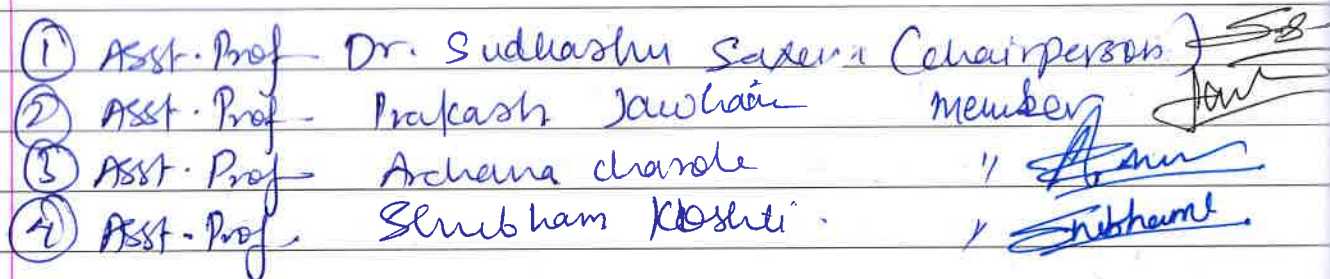 ① Asst. Prof - Dr. Sudhashu Saxena (Chairperson)
② Asst. Prof - Prakash Jawhain Member
③ Asst. Prof - Archana charole "
④ Asst. Prof. Shubham Koshti. " Shubham